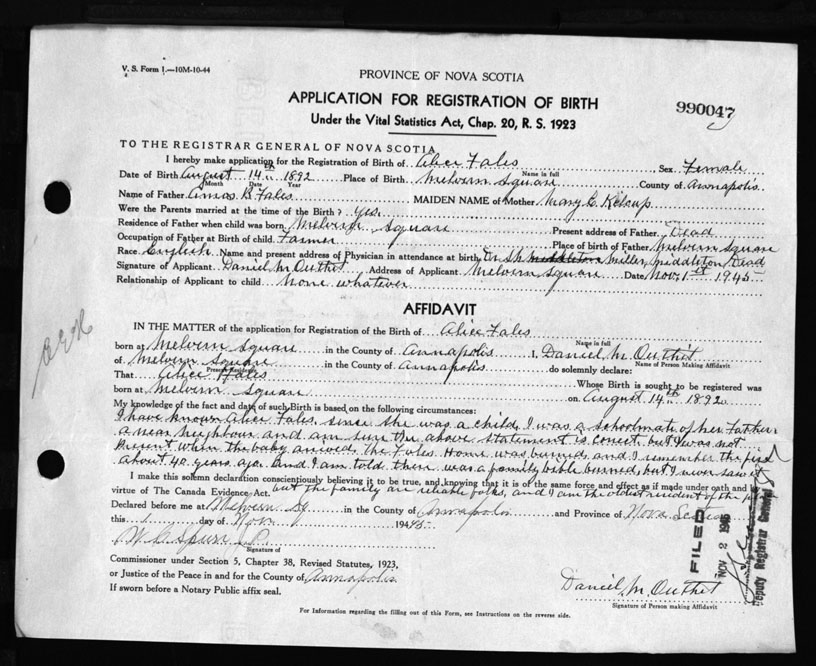 V. S. Form 1.—10M-10-44
PROVINCE OF NOVA SCOTIA
APPLICATION FOR REGISTRATION OF BIRTH
990047
Under the Vital Statistics Act, Chap. 20, R. S. 1923
TO THE REGISTRAR GENERAL OF NOVA SCOTIA
I hereby make application for the Registration of Birth of Alice Fales Sex Female
Name in full
Date of Birth August 14th 1892 Place of Birth Melvern Square County of Annapolis.
Month Date Year
Name of Father Amos B Fales MAIDEN NAME of Mother Mary E
Were the Parents married at the time of the Birth? Yes.
Residence of Father when child was born Melvern Square Present address of Father Dead
Occupation of Father at Birth of child Farmer Place of Birth of Father Melvern Square
Race English Name and present address of Physician in attendance at birth Dr Miller, Middleton, Dead
Signature of Applicant Daniel M. Outhit Address of Applicant Melvern Square Date Nov. 1st 1945
Relationship of Applicant to child None whatever
AFFIDAVIT
IN THE MATTER of the application for Registration of the Birth of Alice Fales
Name in full
born at Melvern Square in the County of Annapolis I, Daniel M. Outhit
Name of Person Making Affidavit
of Melvern Square in the County of Annapolis do solemnly declare:
Present Residence
That Alice Fales Whose Birth is sought to be registered was
born at Melvern Square on August 14th 1892
My knowledge of the fact and date of such Birth is based on the following circumstances:
I have known Alice Fales since she was a child, I was a schoolmate of her Father,
a near neighbour and am sure the above statement is corect, but I was not
Present when the baby arrived, The Fales Home was burned, and I remember the fire
about 40 years ago. And I am told there was a family bible burned, but I never saw it
I make this solemn declaration conscientiously believing it to be true, and knowing that it is of the same force and effect as if made under oath and by
virtue of The Canada Evidence Act. but the family are reliable folks, and I am the oldest resident of the
Declared before me at Melvern Sq in the County of Annapolis and Province of Nova Scotia
this 1 day of Nov 1945
W Spurr J.P.
Signature of
Commissioner under Section 5, Chapter 38, Revised Statutes, 1923,
or Justice of the Peace in and for the County of Annapolis
If sworn before a Notary Public affix seal.
Daniel M. Outhit
Signature of Person making Affidavit
For Information regarding the filling out of this Form, see Instructions on the reverse side.
FILED
NOV 2 1945
Deputy Registrar General